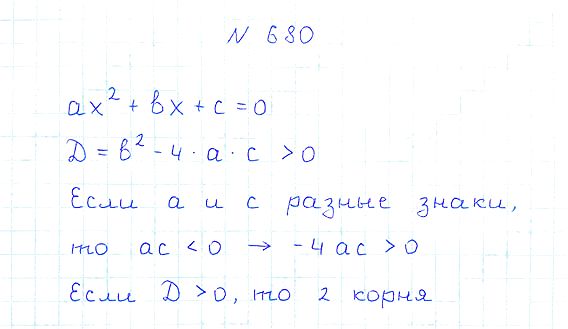 N 680
ax² + bx + c = 0
D = b² - 4 · a · c > 0
Если a и c разные знаки,
то ac < 0 → -4ac > 0
Если D > 0, то 2 корня